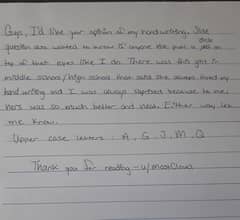 Guys, I'd like your opinion of my handwriting. Side
question also wanted to know if anyone else puts a circle on
top of their eyes like I do. There was this girl in
middle school/high school that said she always loved my
handwriting and I was always surprised because to me,
hers was so much better and neat. Either way let
me know.
Upper case letters: A, G, J, M, Q
Thank you for reading - u/